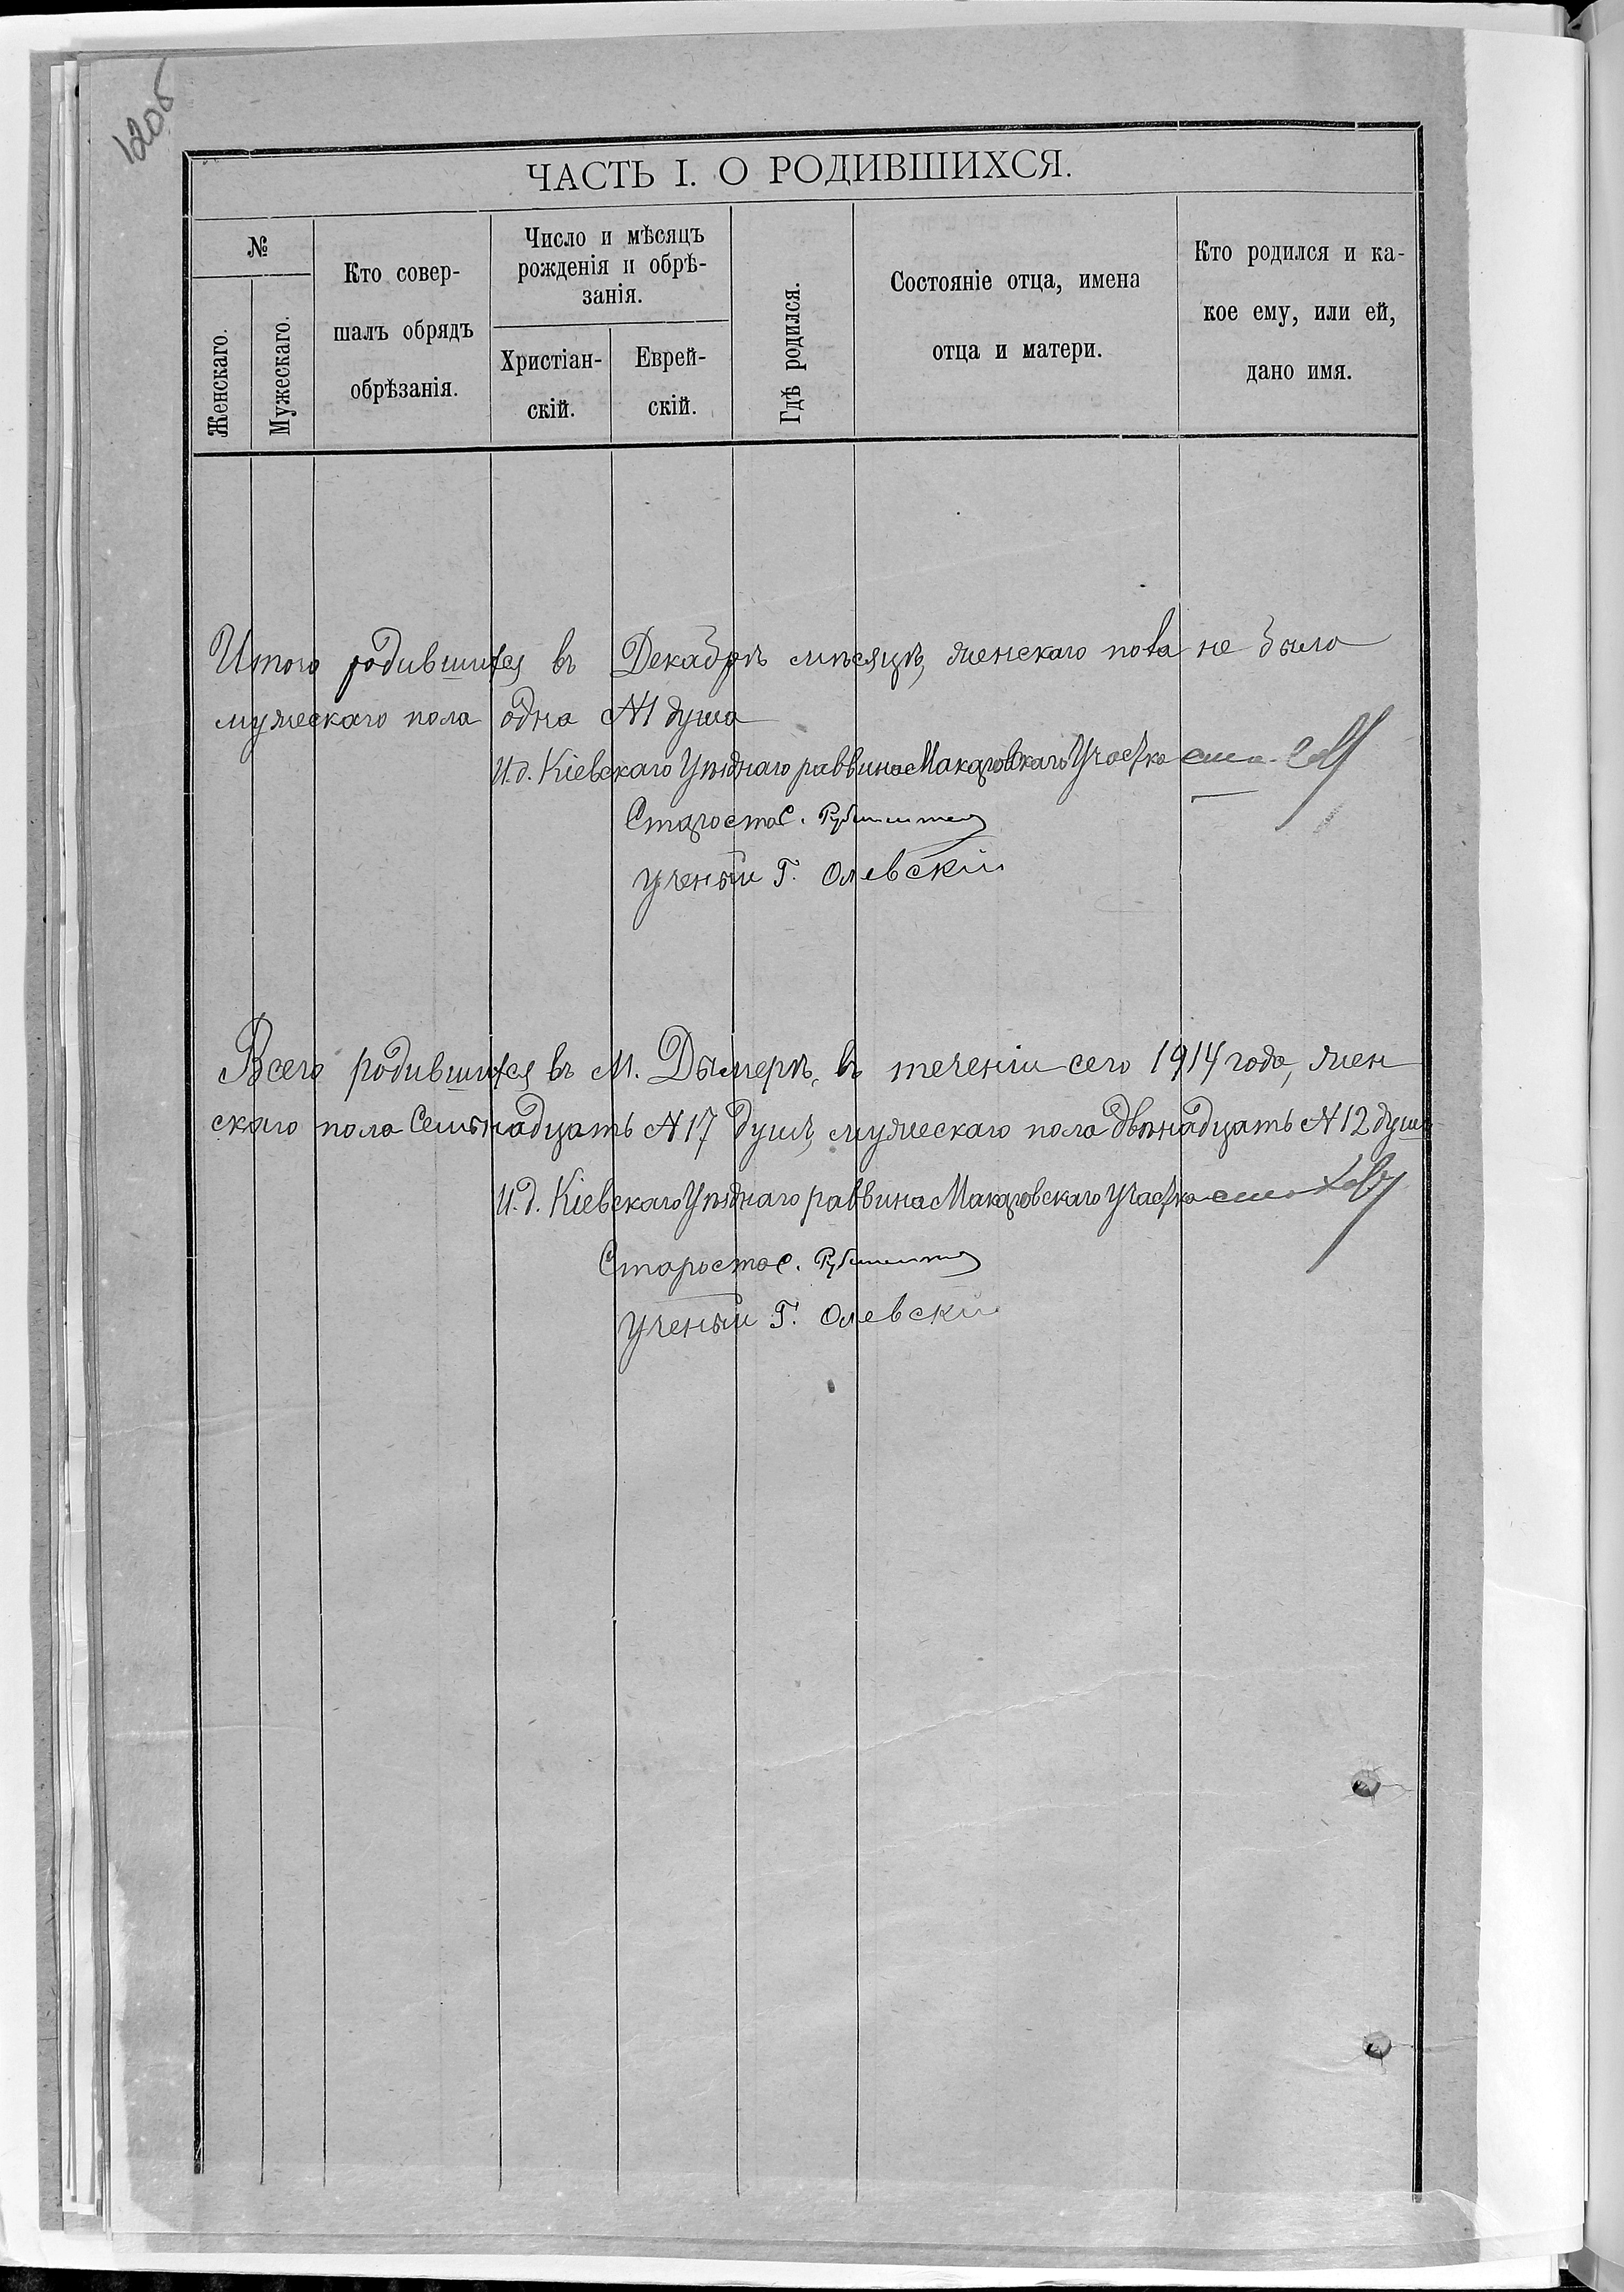 120б
ЧАСТЬ I. О РОДИВШИХСЯ.
№
Женскаго.
Мужескаго.
Кто совер-
шалъ обрядъ
обрѣзанія.
Число и мѣсяцъ
рожденія и обрѣ-
занія.
Христіан-
скій.
Еврей-
скій.
Гдѣ родился.
Состояніе отца, имена
отца и матери.
Кто родился и ка-
кое ему, или ей,
дано имя.
Итого родившихся въ Декабрѣ мѣсяцѣ, женскаго пола не было
мужескаго пола одна №1 душа
И.д. Кіевскаго Уѣзднаго раввина Макаровскаго Участка
Староста С.
Ученый Г. Олевскій
Всего родившихся въ М. Дымерѣ, въ теченіи сего 1914 года, жен
скаго пола Семьнадцать №17 душъ, мужескаго пола двѣнадцать №12 душъ
И.д. Кіевскаго Уѣзднаго раввина Макаровскаго Участка
Староста С.
Ученый Г. Олевскій